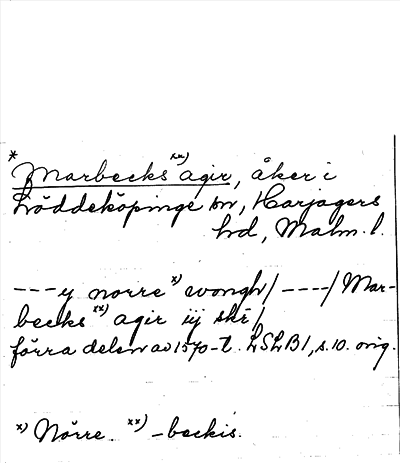 * Marbecks xx) agir, åker i
Löddeköpinge sn, Harjagers
hd, Malm. l.
---y norre x) wongh/ ----/ Mar-
becks xx) agir iij skr/
förra delen av 1570-t. LSLB 1, s. 10. orig.
x) Nörre. xx) -beckis.